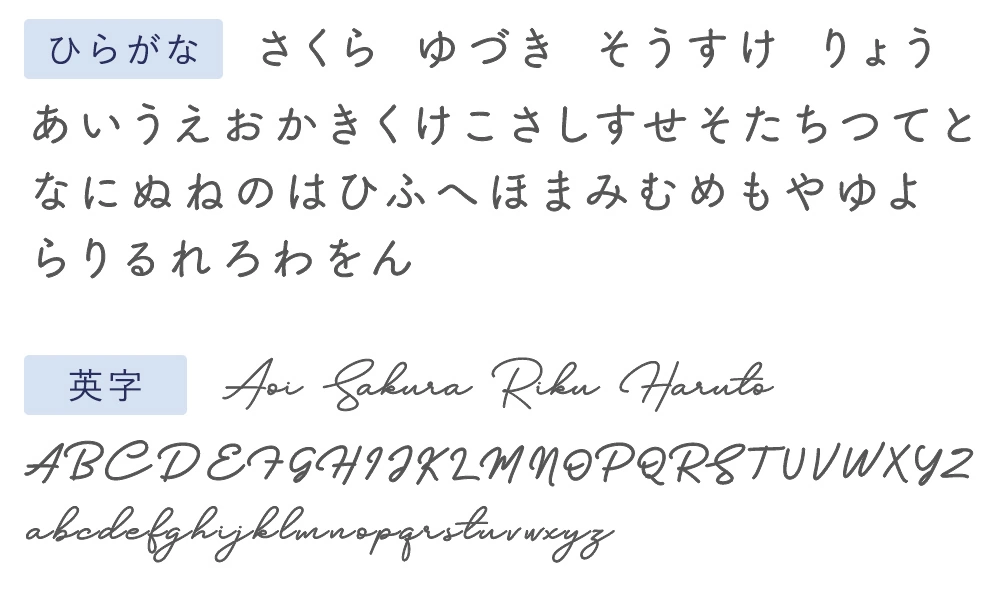 ひらがな さくら ゆづき そうすけ りょう
あいうえおかきくけこさしすせそたちつてと
なにぬねのはひふへほまみむめもやゆよ
らりるれろわをん
英字 Aoi Sakura Riku Haruto
ABCDEFGHIJKLMNOPQRSTUVWXYZ
abcdefghijklmnopqrstuvwxyz